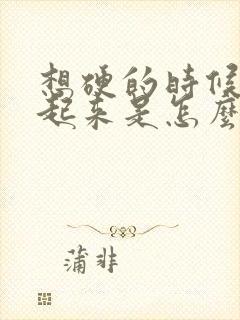 想硬的時候
起来是怎麼
蒲非